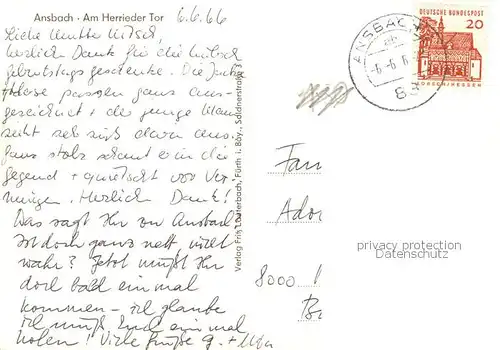 Ansbach · Am Herrieder Tor
6.6.66
Liebe Mutter
herzlich Dank für die hübsch
Geburtstagsgeschenke. Die Jacke
+ Hose passen ganz aus-
gezeichnet + der junge Mann
sieht sehr süß darin aus.
Ganz stolz schaut er in die
Gegend + quietscht vor Ver-
gnügen. Herzlich Dank!
Was sagt Ihr zu Ansbach
Ist doch ganz nett, nicht
wahr? Jetzt müßt Ihr
doch bald einmal
kommen – ich glaube
ich muß Euch einmal
holen! Viele Grüße G. +
Verlag Fritz Lauterbach, Fürth i. Bay., Soldnerstraße 3
ANSBACH
-6.-6.6
DEUTSCHE BUNDESPOST
20
LORSCH/HESSEN
Fam
Ador
8000
privacy protection
Datenschutz